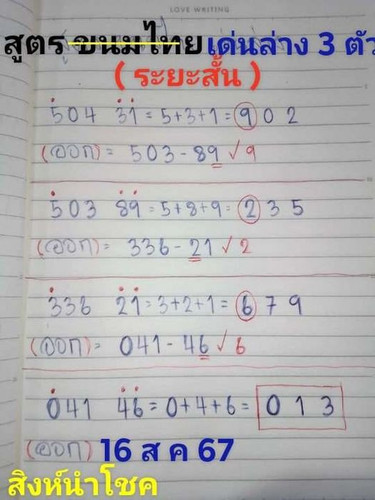 LOVE WRITING
สูตร ขนมไทย เด่นล่าง 3 ตัว
( ระยะสั้น )
504 31 = 5+3+1 = 9 0 2
(ออก) = 503 - 89 ✓ 9
503 89 = 5+8+9 = 2 3 5
(ออก) = 336 - 21 ✓ 2
336 21 = 3+2+1 = 6 7 9
(ออก) = 041 - 46 ✓ 6
041 46 = 0+4+6 = 0 1 3
(ออก) 16 ส ค 67
สิงห์นำโชค